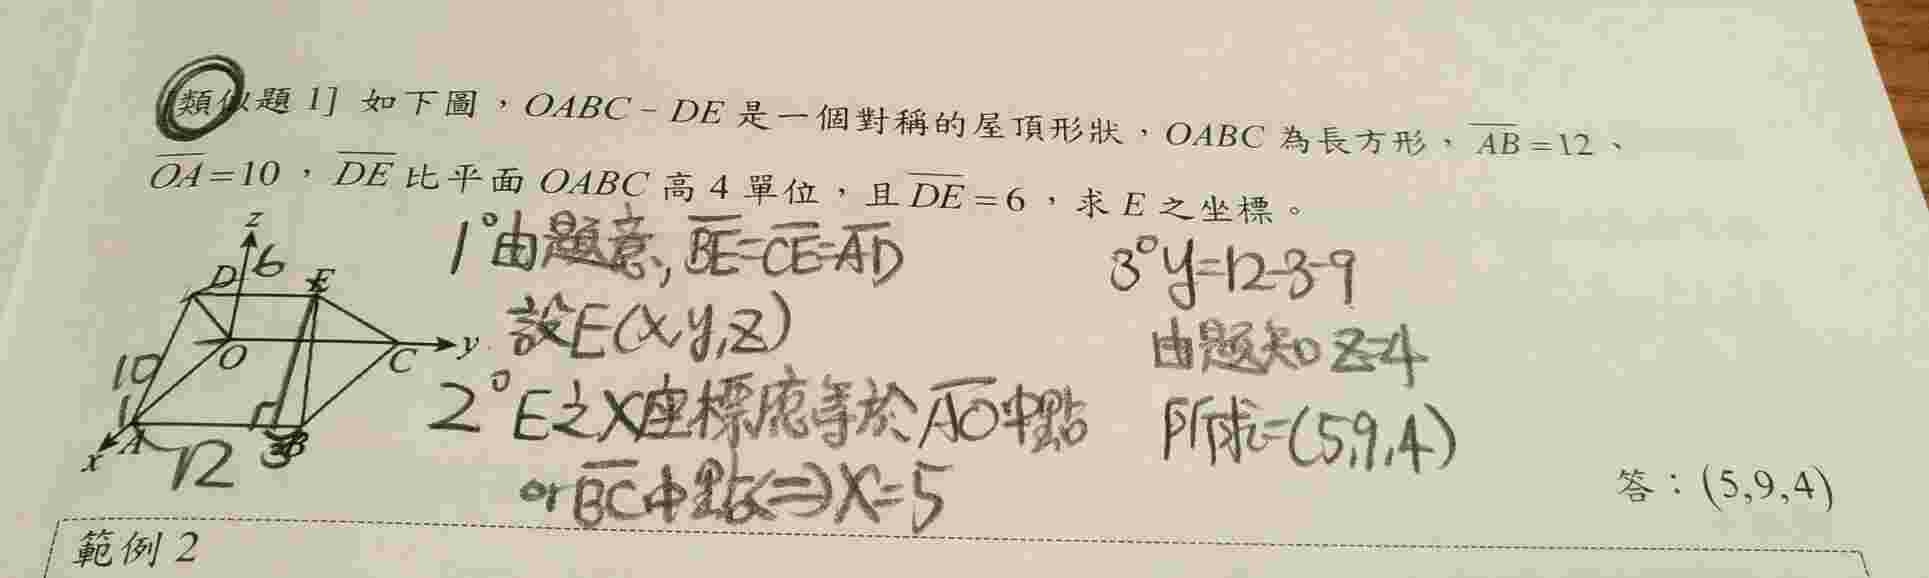 [類似題 1] 如下圖，OABC－DE 是一個對稱的屋頂形狀，OABC 為長方形，AB=12、
OA=10，DE 比平面 OABC 高 4 單位，且 DE=6，求 E 之坐標。
1°由題意, BE=CE=AD
設E(x,y,z)
2°E之X座標應等於AO中點
or BC中點<=>X=5
3°y=12-3=9
由題知z=4
所求=(5,9,4)
z
D 6 E
O C y
10
x A 12 3 B
答：(5,9,4)
範例 2